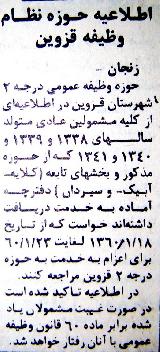 اطلاعیه حوزه نظام
وظیفه قزوین
زنجان -
حوزه وظیفه عمومی درجه ۲
شهرستان قزوین در اطلاعیه‌ای
از کلیه مشمولین عادی متولد
سالهای ۱۳۳۸ و ۱۳۳۹ و
۱۳۴۰ و ۱۳۴۱ که از حوزه
مذکور و بخشهای تابعه (کلایه
آبیک - و سیردان) دفترچه
آماده به خدمت دریافت
داشته‌اند خواست که از تاریخ
۱۳۶۰/۱/۱۸ لغایت ۶۰/۱/۲۳
برای اعزام به خدمت به حوزه
درجه ۲ قزوین مراجعه کنند.
در اطلاعیه تاکید شده است
در صورت غیبت مشمولان یاد
شده برابر ماده ۶۰ قانون وظیفه
عمومی با آنان رفتار خواهد شد.